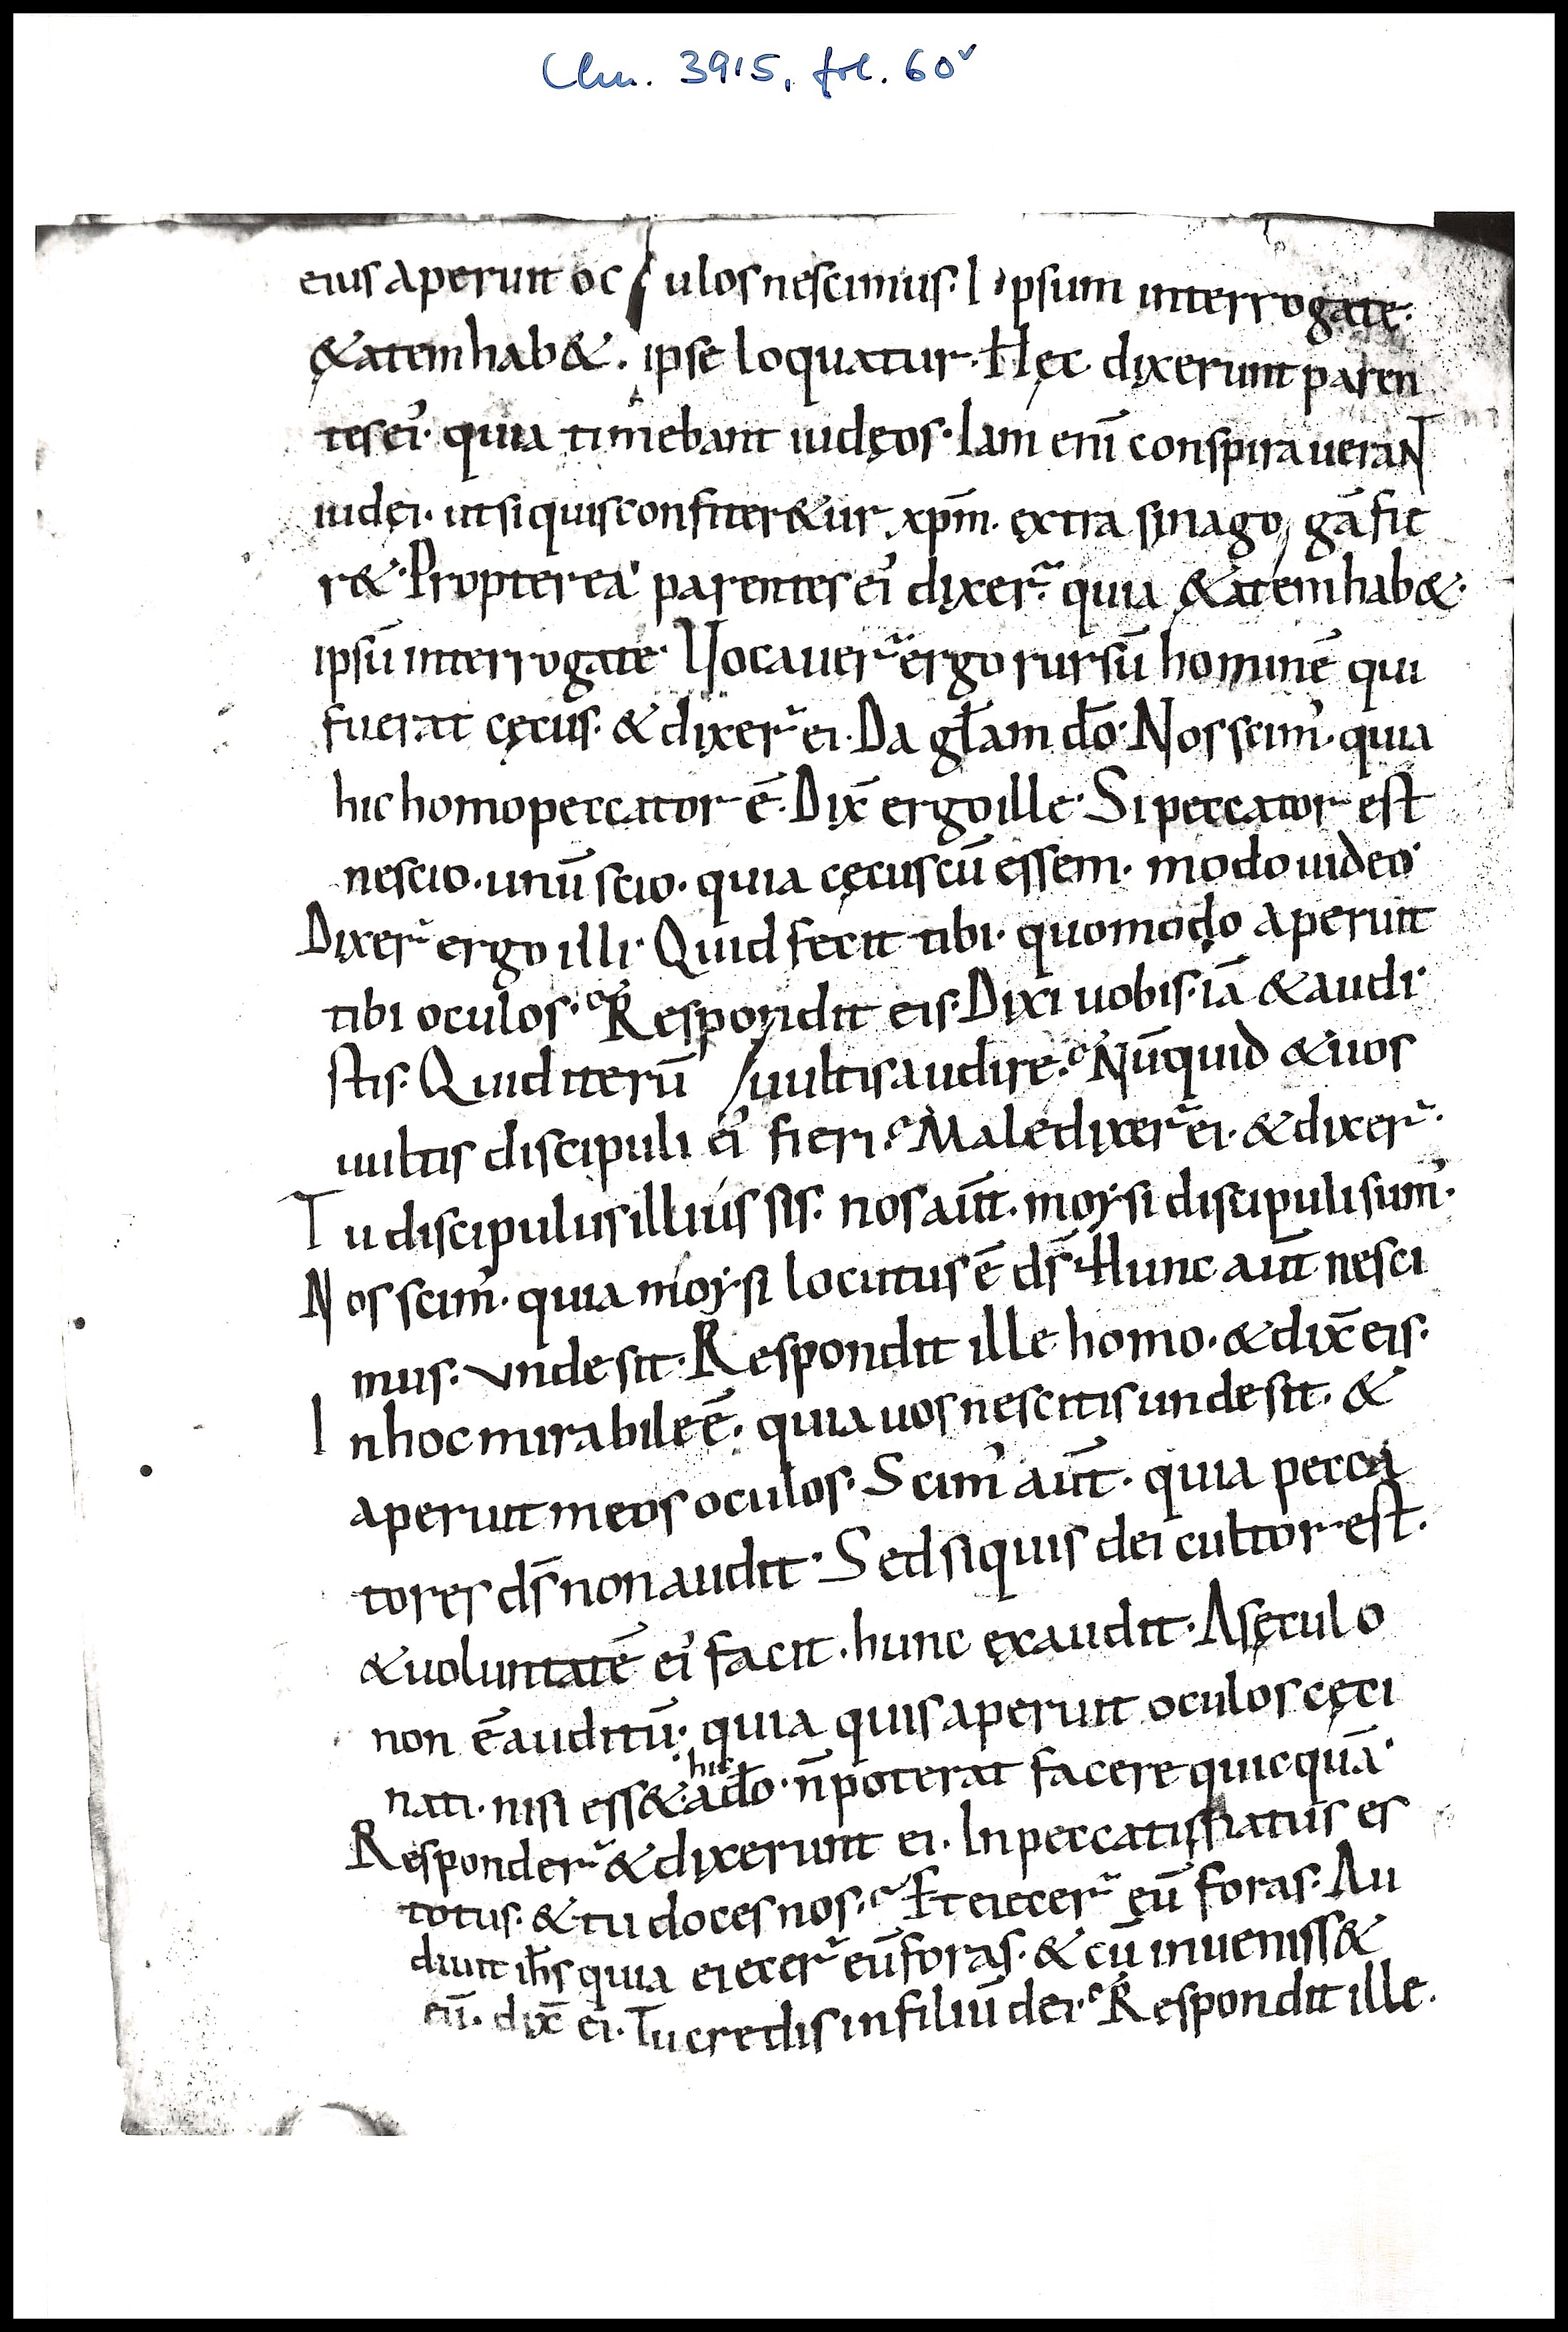 Clm. 3915, fol. 60v
eius aperuit oculos nescimus. Ipsum interrogate.
&atem hab&. ipse loquatur. Hęc dixerunt paren
tes ei᾽. quia timebant iudęos. Iam eni̅ conspirauerant
iudęi. ut si quis confiter&ur xp̅m. extra sinagoga̅ fie
r&. Propterea parentes ei᾽ dixer̅. quia &atem hab&.
ipsu̅ interrogate. Vocauer̅ ergo rursu̅ homine̅ qui
fuerat cęcus. & dixer̅ ei. Da gl̅am do̅. Nos scim᾽. quia
hic homo peccator e̅. Dix̅ ergo ille. Si peccator est
nescio. unu̅ scio. quia cęcus cu̅ essem. modo uideo.
Dixer̅ ergo illi. Quid fecit tibi. quomodo aperuit
tibi oculos. Respondit eis. Dixi uobis. ia̅ & audi
stis. Quid iteru̅ uultis audire. Nu̅quid & uos
uultis discipuli ei᾽ fieri. Maledixer̅ ei. & dixer̅.
Tu discipulus illius sis. nos aut̅. moysi discipuli sum᾽.
Nos scim᾽. quia moysi locutus e̅ ds̅. Hunc aut̅ nesci
mus. unde sit. Respondit ille homo. & dix̅ eis.
In hoc mirabile e̅. quia uos nescitis unde sit. &
aperuit meos oculos. Scim᾽ aut̅. quia pecca
tores ds̅ non audit. Sed si quis dei cultor est.
& uoluntate̅ ei᾽ facit. hunc exaudit. A sęculo
non e̅ auditu̅. quia quis aperuit oculos cęci
nati. nisi ess& hic a do̅. n̅ poterat facere quicqua̅.
Responder̅ & dixerunt ei. In peccatis natus es
totus. & tu doces nos. Et eiecer̅ eu̅ foras. Au
diuit ih̅s quia eiecer̅ eu̅ foras. & cu̅ inueniss&
eu̅. dix̅ ei. Tu credis in filiu̅ dei. Respondit ille.